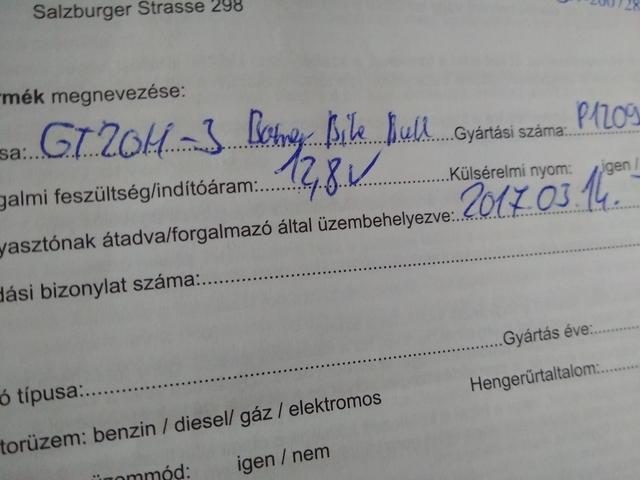 Salzburger Strasse 298
rmék megnevezése:
sa: GT20H-3 Bike Bull Gyártási száma: P1209
galmi feszültség/indítóáram: 12,8V Külsérelmi nyom: igen /
yasztónak átadva/forgalmazó által üzembehelyezve: 2017.03.14.
dási bizonylat száma:
Gyártás éve:
ó típusa:
Hengerűrtaltalom:
torüzem: benzin / diesel/ gáz / elektromos
üzemmód: igen / nem